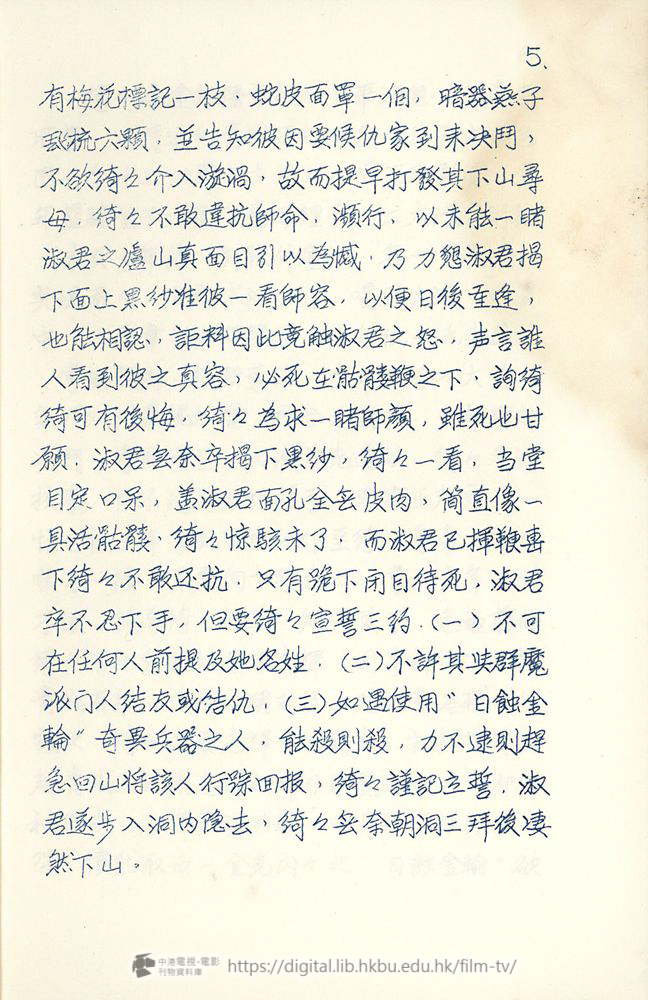 5.
有梅花標記一枝．蛇皮面罩一個，暗器燕子
梳六顆，並告知彼因要候仇家到来决鬥，
不欲綺々介入漩渦，故而提早打發其下山尋
母．綺々不敢違抗師命．瀕行，以未能一睹
淑君之廬山真面目引以為憾．乃力懇淑君揭
下面上黑纱准彼一看師容．以便日後重逢，
也能相認，詎料因此竟触淑君之怨，声言誰
人看到彼之真容，必死在骷髏鞭之下．詢綺
綺可有後悔．綺々為求一睹師顔，雖死也甘
願．淑君無奈卒揭下黑纱，綺々一看，当堂
目定口呆，盖淑君面孔全無皮肉，简直像一
具活骷髏．綺々惊駭未了．而淑君已揮鞭
下綺々不敢还抗．只有跪下闭目待死，淑君
卒不忍下手，但要綺々宣誓三约．(一) 不可
在任何人前提及她名姓．(二) 不許其与群魔
派门人结友或结仇．(三) 如遇使用"日蝕金
輪"奇異兵器之人，能殺則殺，力不逮則趕
急回山将該人行踪回报，綺々謹記立誓．淑
君遂步入洞内隐去，綺々無奈朝洞三拜後凄
然下山。
中港電視-電影
刊物資料庫
https://digital.lib.hkbu.edu.hk/film-tv/